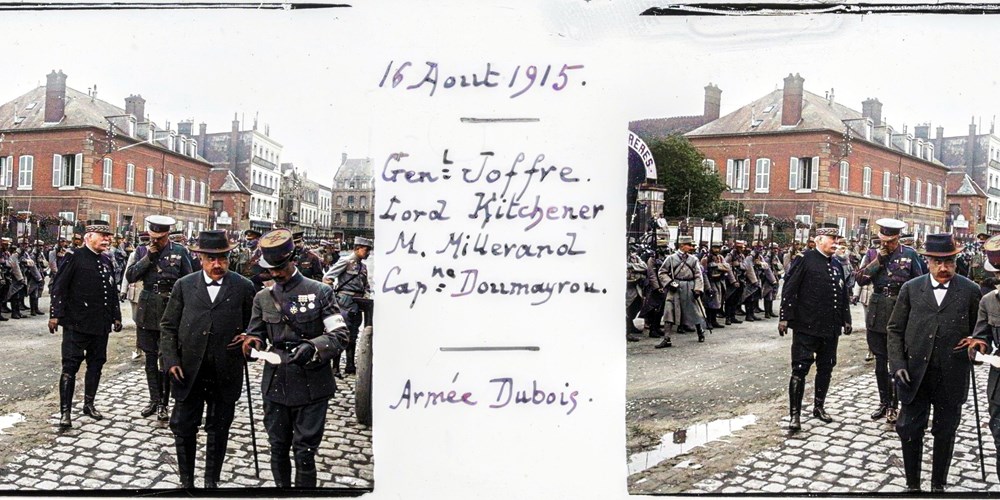 16 Aout 1915.
Genˡ: Joffre.
Lord Kitchener
M. Millerand
Capⁿᵉ: Doumayrou.
Armée Dubois.